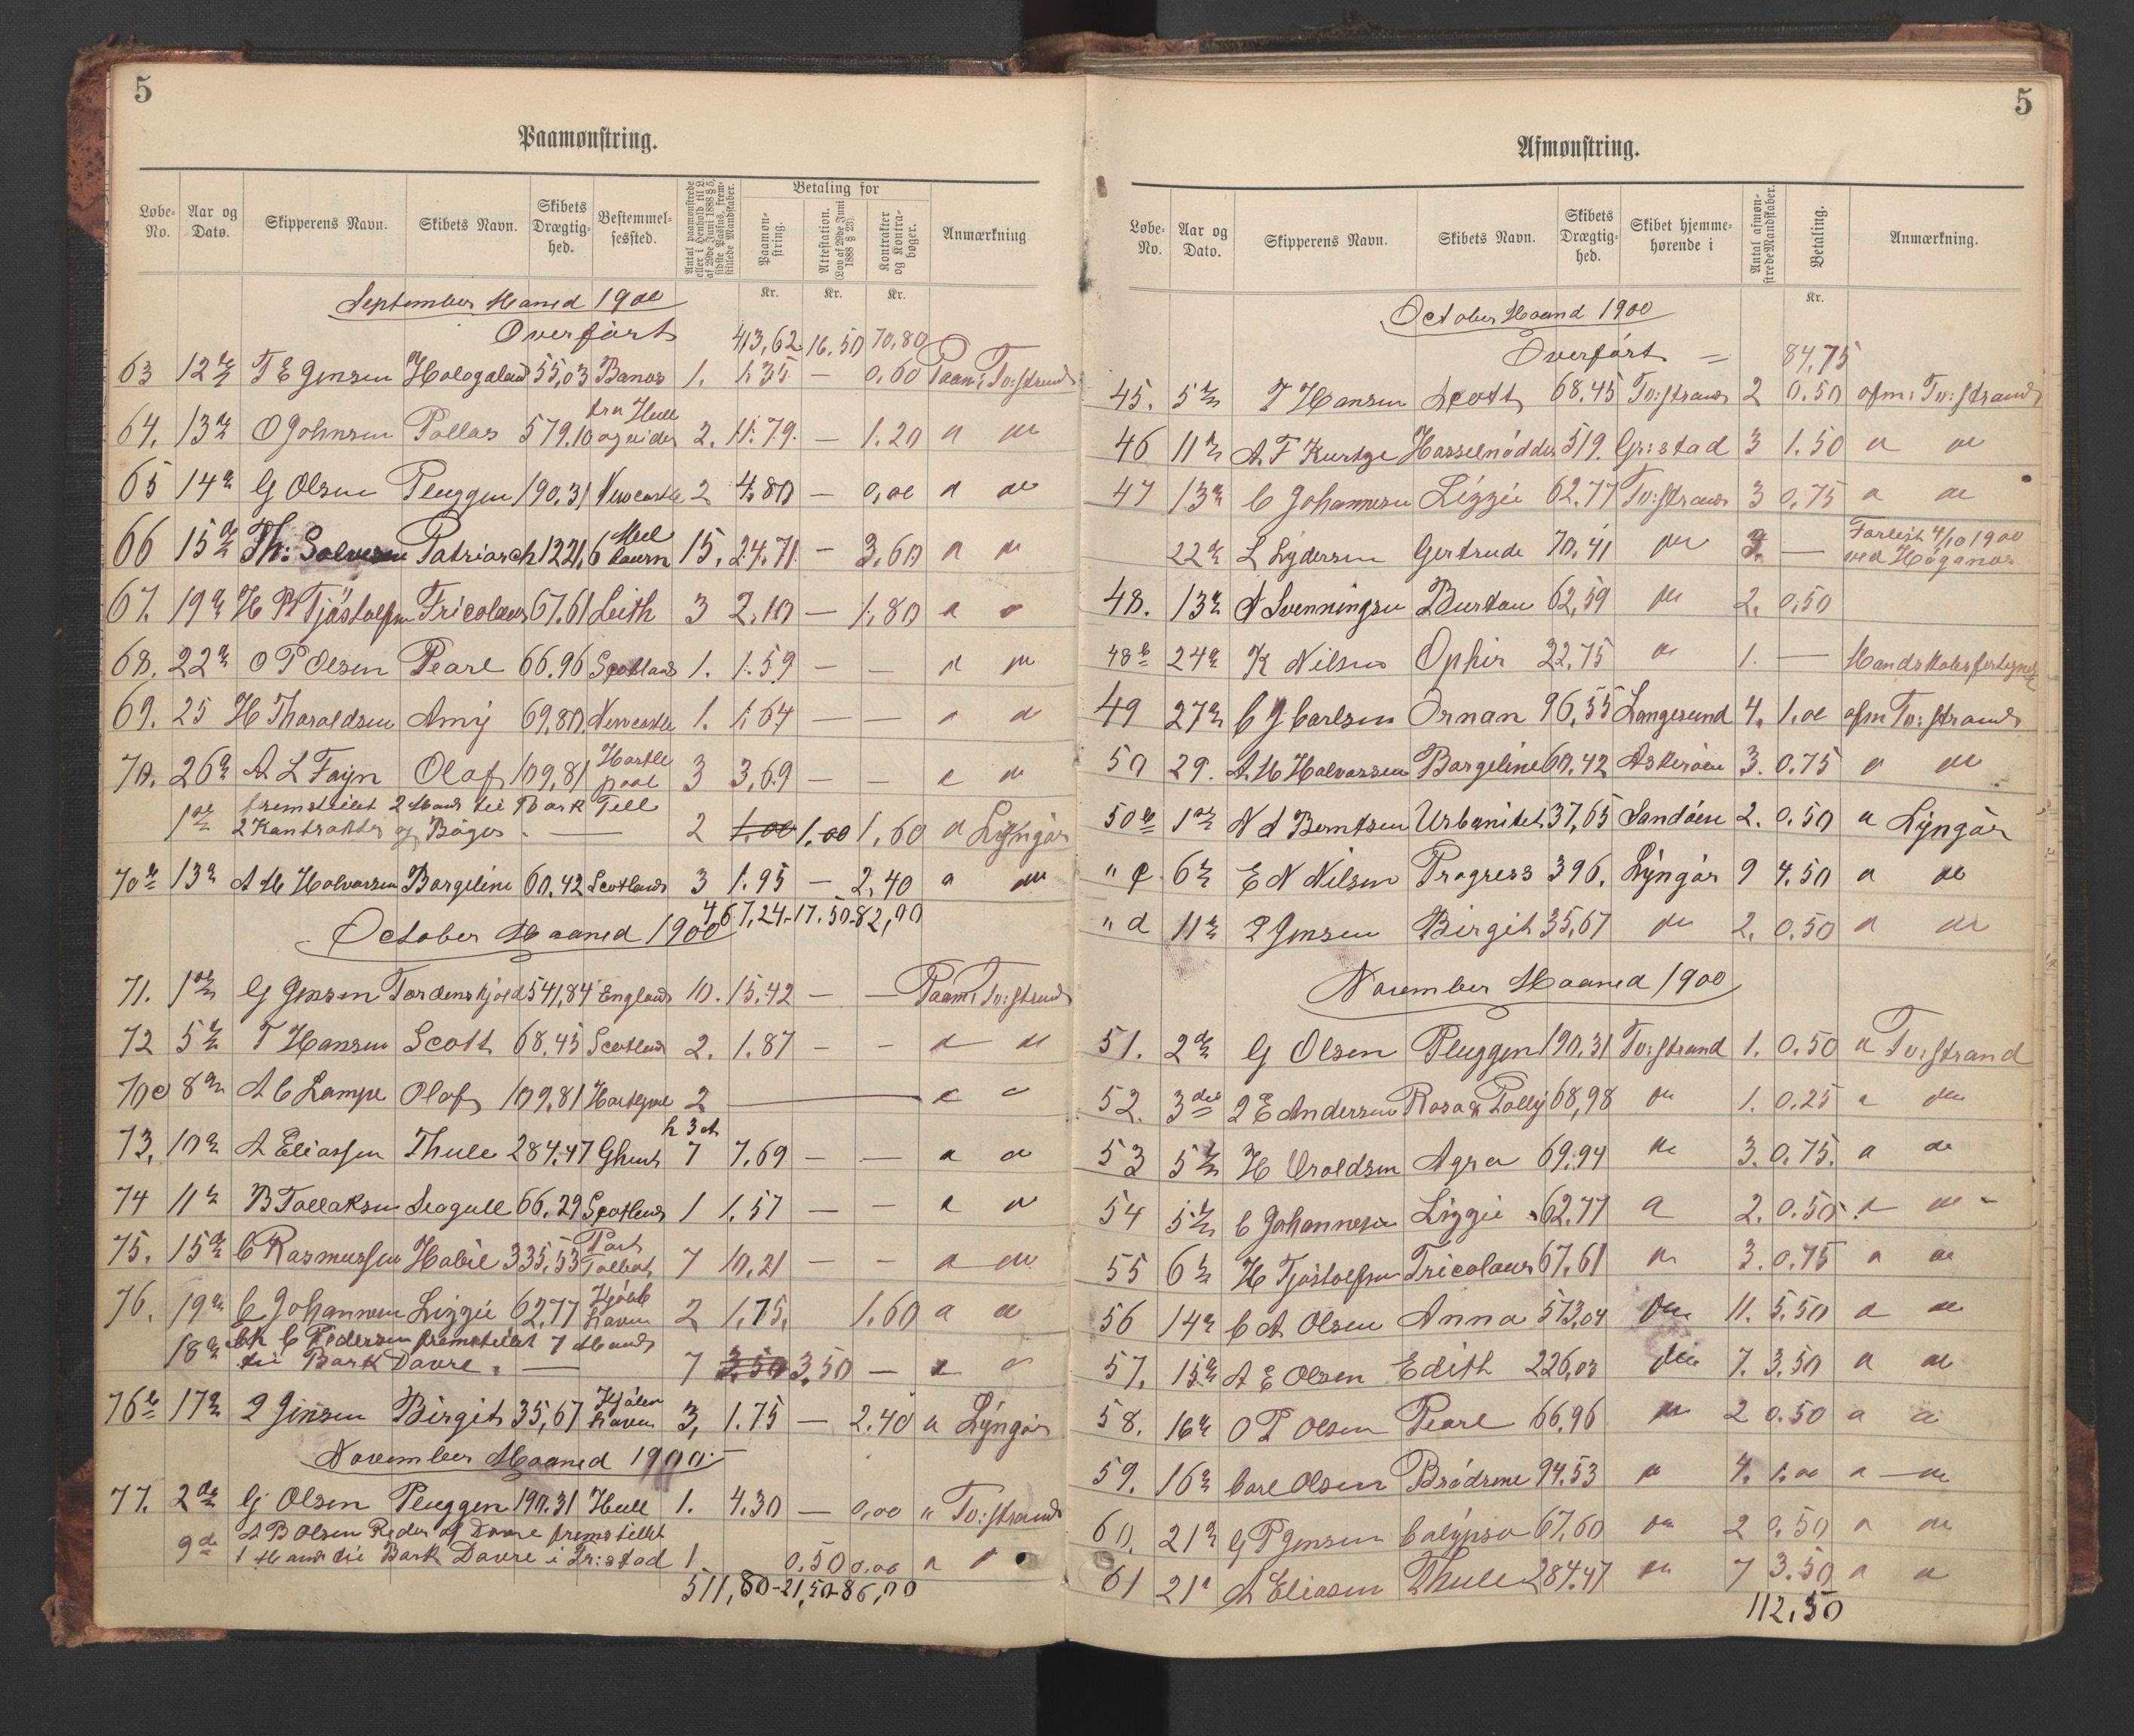 5
Paamønstring.
Løbe-No. Aar og Dato. Skipperens Navn. Skibets Navn. Skibets Drægtighed. Bestemmelsessted. Antal paamønstrede eller i Henhold til L. af 29de Juni 1888 § 5, sidste Passus, fremstillede Mandskaber. Betaling for Paamønstring. Attestation. (Lov af 29de Juni 1888 § 23). Kontrakter og Kontrabøger. Anmærkning
Kr. Kr. Kr.
September Maaned 1900
Overført 413,62 16,50 70,80
63 12te T E Jensen Hologaland 55,03 1. 1.35 — 0,60 Paam: Tv:strand
64. 13de O Johnsen Pallas 579.10 fra Hull og vider 2. 11.79. — 1.20 " do
65 14de G Olsen Pluggen 190.31 Newcastle 2 4.80 — 0,00 " do
66 15de Th: Solvesen Patriarch 1221,6 Melbourn 15. 24.71 — 3.60 " do
67. 19de H Tjøstolfsen Tricoleur 67.61 Leith 3 2.10 — 1.80 " "
68. 22de O P Olsen Pearl 66.96 Scotland 1. 1.59 — — " do
69. 25 H Tharaldsen Amy 69,80 Newcastle 1. 1.64 — — " "
70. 26de A L Fayn Olaf 109,81 Hartlepool 3 3,69 — — " do
1ste fremstillet 2 Mand til Bark Tell
2 Kontrakter og Bøger. — 2 1,00 1,00 1,60 " Lyngør
70b 13de A M Halvorsen Bargeline 60.42 Scotland 3 1.95 — 2.40 " do
467,24-17.50-82,90
October Maaned 1900
71. 1ste G Jensen Tordenskjold 541,84 England 10. 15.42 — — Paam: Tv:strand
72 5te T Hansen Scott 68.45 Scotland 2. 1.87 — — " do
70c 8de A C Lampe Olaf 109,81 Hartlpool 2 — " "
73. 10de A Eliassen Thule 284.47 Ghent 7 7.69 — — " "
74 11te B Tallaksen Seagull 66.29 Scotland 1 1.57 — — " "
75. 15de C Rasmussen Habil 335,53 Port Talbot 7 10,21 — — " do
76. 19de C Johannesen Lizzie 62.77 2 1,75, 1.60 " "
18de C Pedersen fremstillet 7 Mand
til Bark Davre. — 7 3,50 3,50 — " "
76b 17de Jensen Birgit 35,67 3, 1.75 — 2.40 " Lyngør
November Maaned 1900
77. 2de G Olsen Pluggen 190.31 Hull 1. 4.30 — 0,00 " Tv:strand
9de A B Olsen Reder af Davre fremstillet
1 Mand til Bark Davre i Fr:stad 1. 0,50 0,00 " "
511,80-21,50-86,00
5
Afmønstring.
Løbe-No. Aar og Dato. Skipperens Navn. Skibets Navn. Skibets Drægtighed. Skibet hjemmehørende i Antal afmønstrede Mandskaber. Betaling. Anmærkning.
Kr.
October Maaned 1900
Overført = 84,75
45. 5te T Hansen Scott 68.45 Tv:strand 2 0.50 afm: Tv:strand
46 11te A F Kurtze Hasselnødden 519. Gr:stad 3 1.50 " do
47 13de C Johannesen Lizzie 62.77 Tv:strand 3 0.75 " do
22de L Lydersen Gertrude 70,41 do 3. — Forlist 4/10 1900 ved Höganas
48. 13de A Svenningsen Burton 62,59 do 2. 0.50
48b 24de K Nilsen Ophir 22,75 " 1. —
49 27de C J Carlsen Ornan 96,55 Langesund 4. 1.00 afm Tv:strand
50 29. A M Halvorsen Bargeline 60.42 Askerøen 3. 0.75 " do
50b 1ste N A Berntsen Urbanitet 37,65 Sandøen 2. 0.50 " Lyngør
" c 6te E N Nilsen Progress 396. Lyngør 9 4.50 " do
" d 11te Jensen Birgit 35,67 do 2. 0.50 " do
November Maaned 1900
51. 2de G Olsen Pluggen 190.31 Tv:strand 1. 0.50 " Tv:strand
52. 3die E Andersen Rosa & Polly 68,98 do 1. 0.25 " do
53 5te H Aroldsen Agra 69.94 do 3. 0.75. " do
54 5te C Johannesen Lizzie 62.77 " 2. 0.50 " do
55 6te H Tjøstolfsen Tricoleur 67.61 do 3. 0.75 " do
56 14de C A Olsen Anna 573,04 do 11. 5.50 " do
57. 15de A E Olsen Edith 226,03 do 7. 3.50 " do
58. 16de O P Olsen Pearl 66.96 do 2 0.50 " "
59. 16de Carl Olsen Brødrene 94.53 do 4. 1.00 " do
60. 21de G P Jensen Calypso 67.60 do 2 0.50 " do
61 21de A Eliasen Thule 284.47 do 7 3.50 " "
112.50